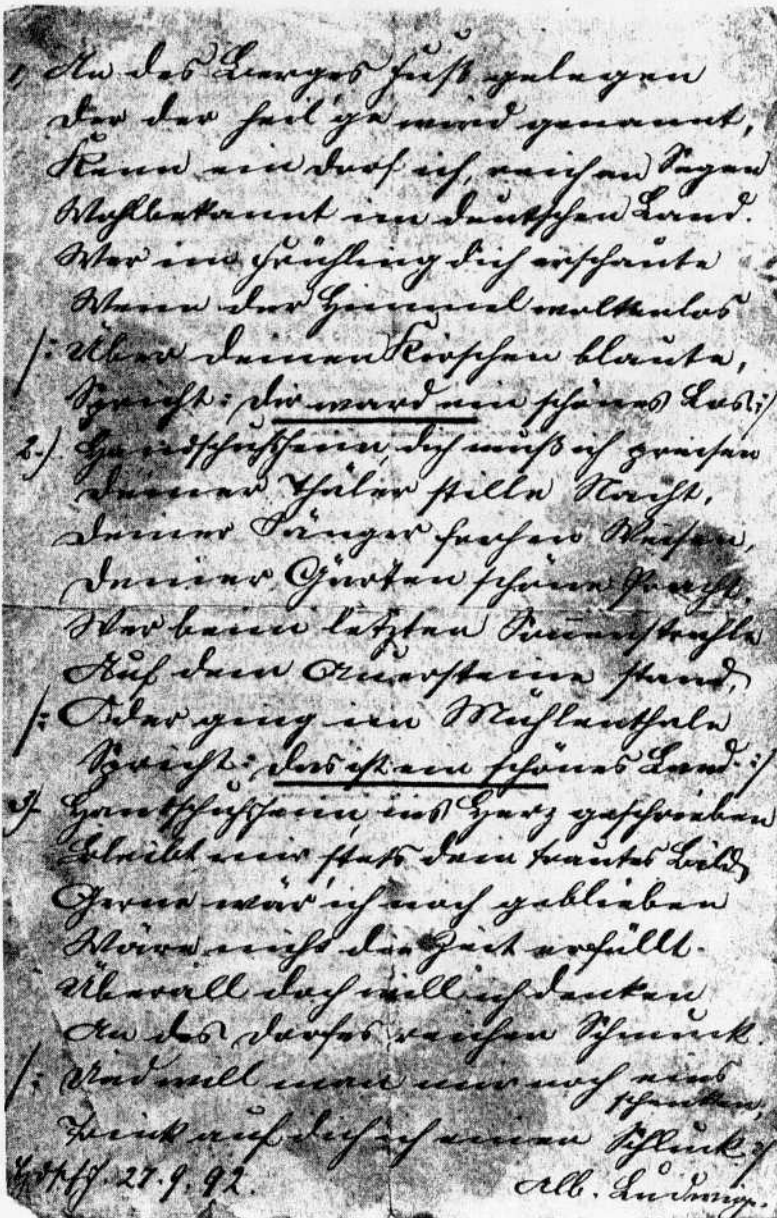 1, An des Berges Fuß gelegen
Der der heil'ge wird genannt,
Kenn ein Dorf ich, reich an Segen
Wohlbekannt im deutschen Land.
Wer im Frühling dich erschaute
Wenn der Himmel wolkenlos
/: Über deinen Kirschen blaute,
Spricht: Dir ward ein schönes Los :/
2.) Handschuhsheim, dich muß ich preisen
Deiner Thäler stille Nacht,
Deiner Sänger frohen Weisen,
Deiner Gärten schöne Pracht.
Wer beim letzten Sonnenstrahle
Auf dem Auersteine stand,
/: Oder ging im Mühlenthale
Spricht: Das ist ein schönes Land. :/
3) Handschuhsheim, ins Herz geschrieben
Bleibt mir stets dein trautes Bild
Gerne wär' ich noch geblieben
Wäre nicht die Zeit erfüllt.
Überall doch will ich denken
An des Dorfes reichen Schmuck.
/: Und will man mir noch eins
schenken,
Trink auf dich ich einen Schluck :/
27.9.92.
Alb. Ludwig.